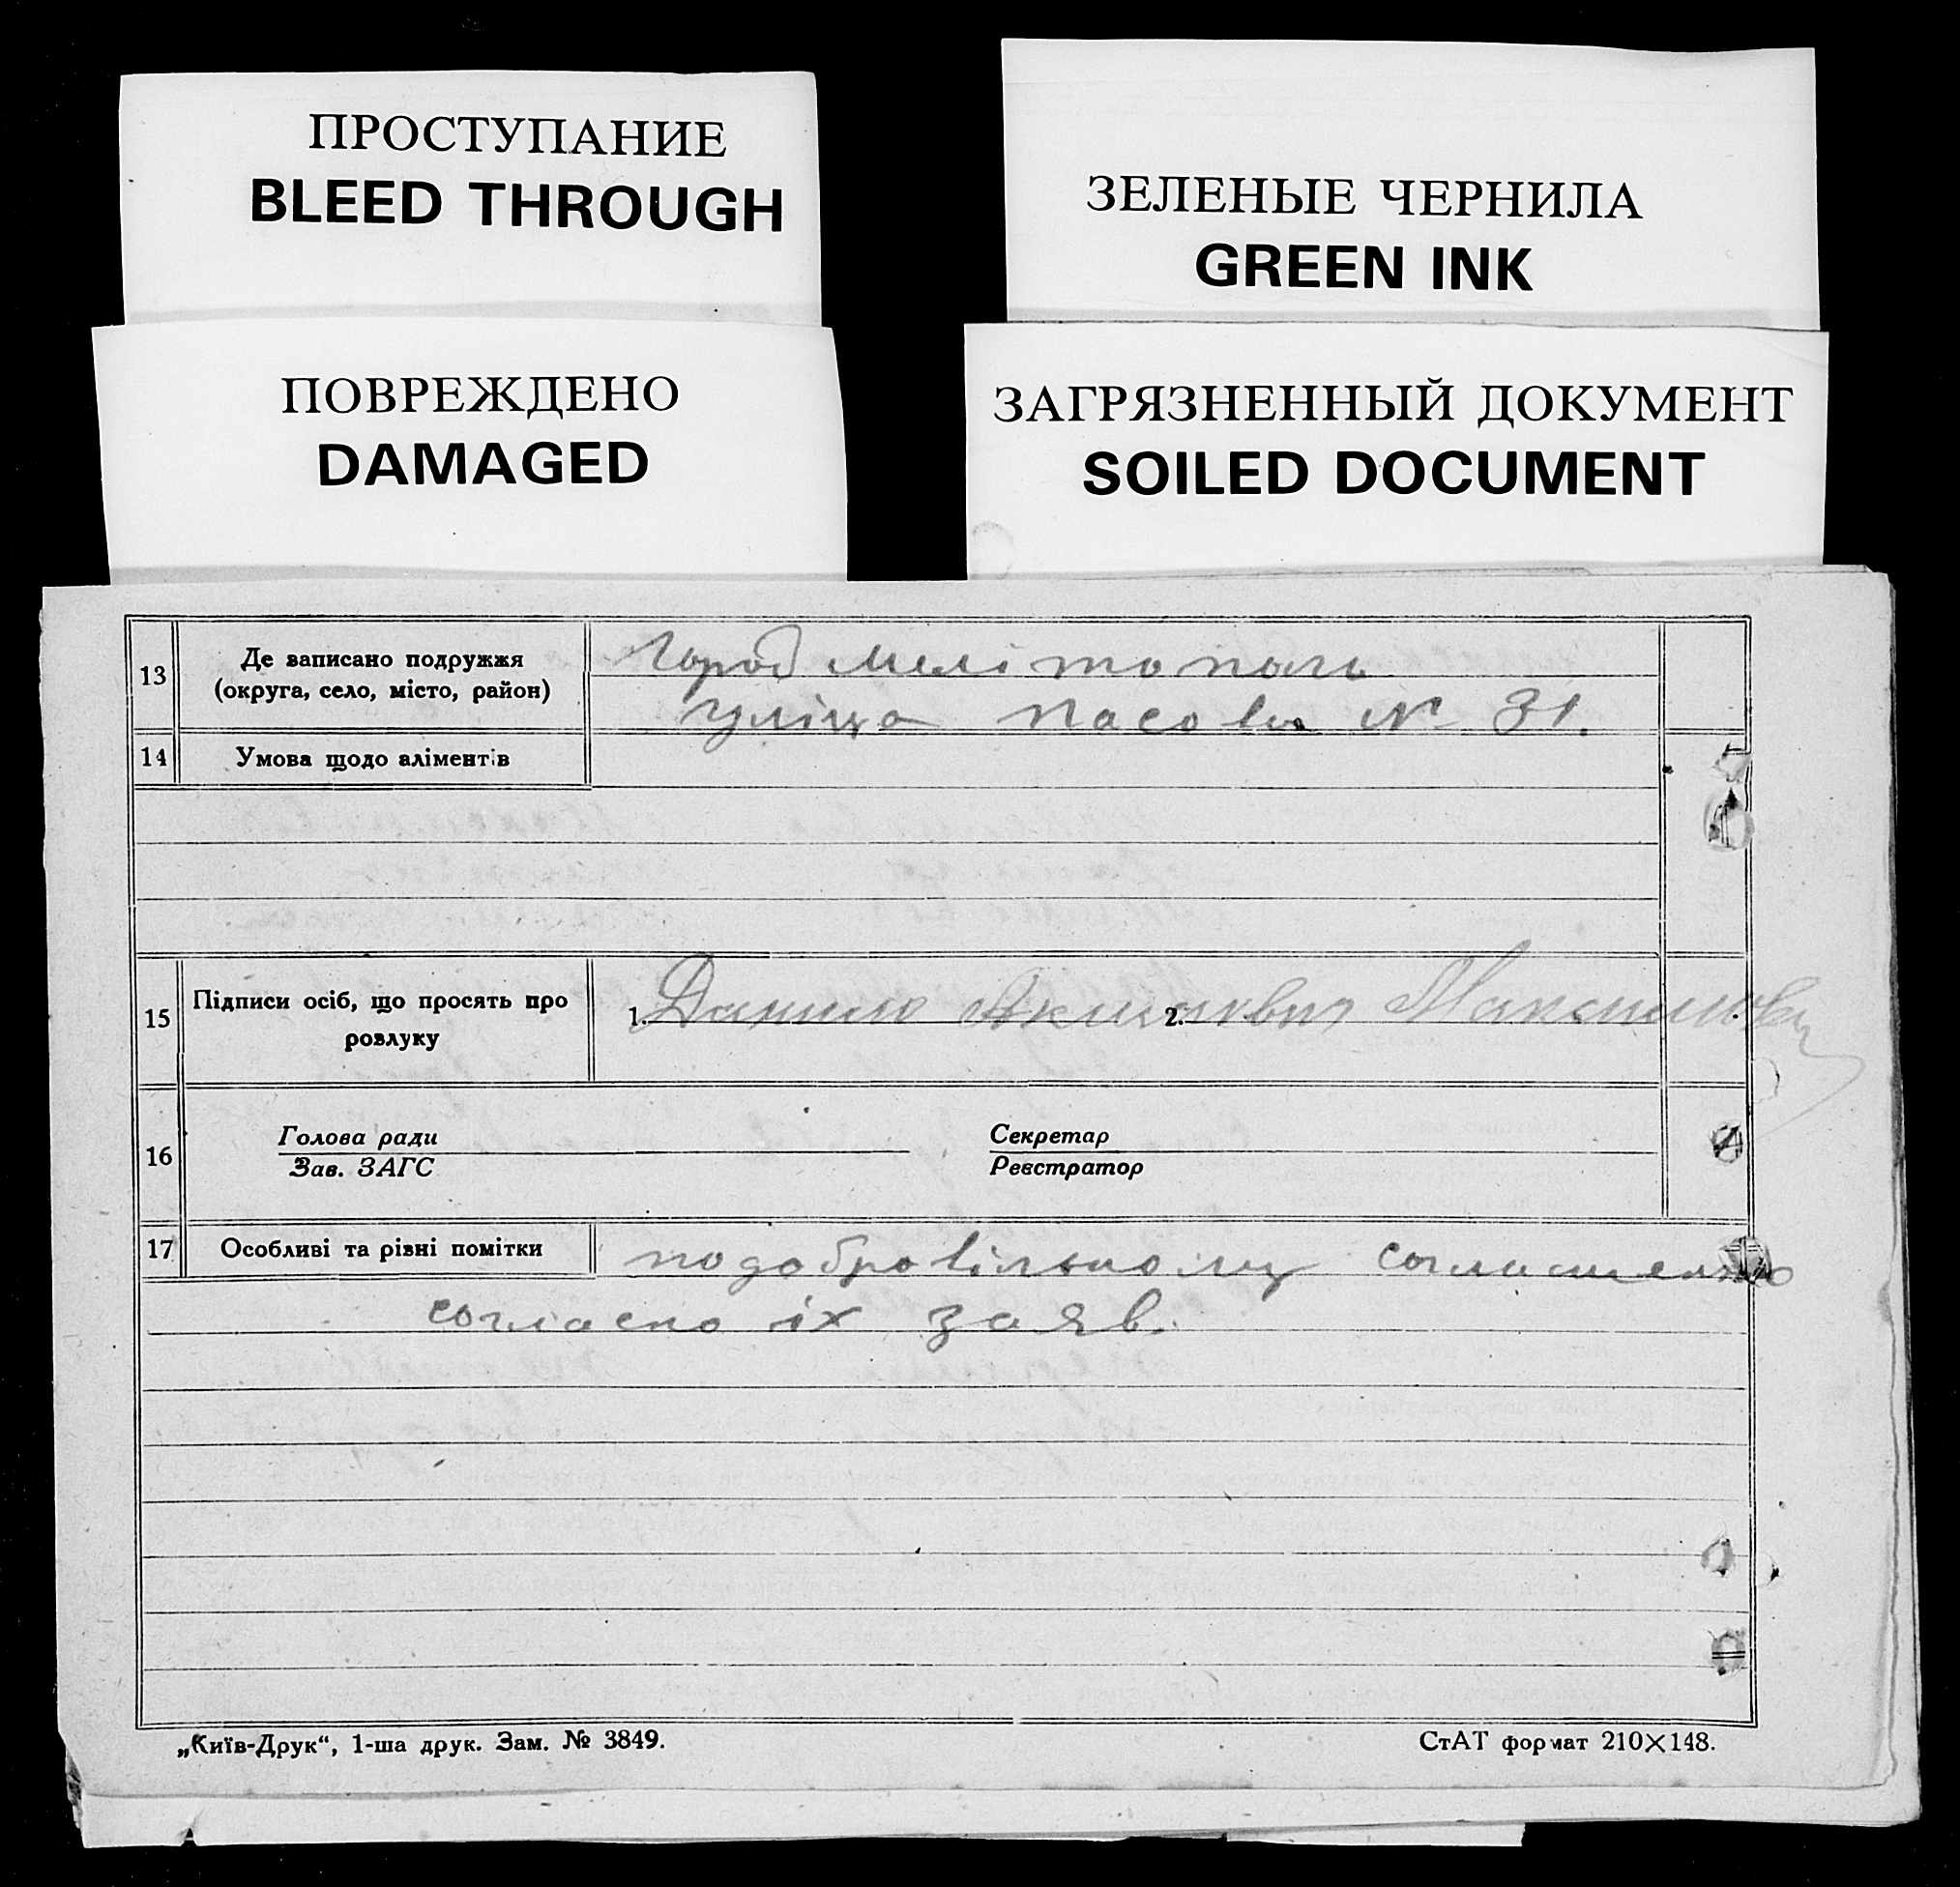 ПРОСТУПАНИЕ
BLEED THROUGH
ЗЕЛЕНЫЕ ЧЕРНИЛА
GREEN INK
ПОВРЕЖДЕНО
DAMAGED
ЗАГРЯЗНЕННЫЙ ДОКУМЕНТ
SOILED DOCUMENT
13 Де записано подружжя
(округа, село, місто, район)
Город Мелітополь
уліца Пасова № 31.
14 Умова щодо аліментів
15 Підписи осіб, що просять про
розлуку
1. Данило 2. Максимович
16 Голова ради
Зав. ЗАГС
Секретар
Реєстратор
17 Особливі та різні помітки
по добровільному согласшению
согласно іх заяв.
„Київ-Друк“, 1-ша друк. Зам. № 3849.
СтАТ формат 210×148.